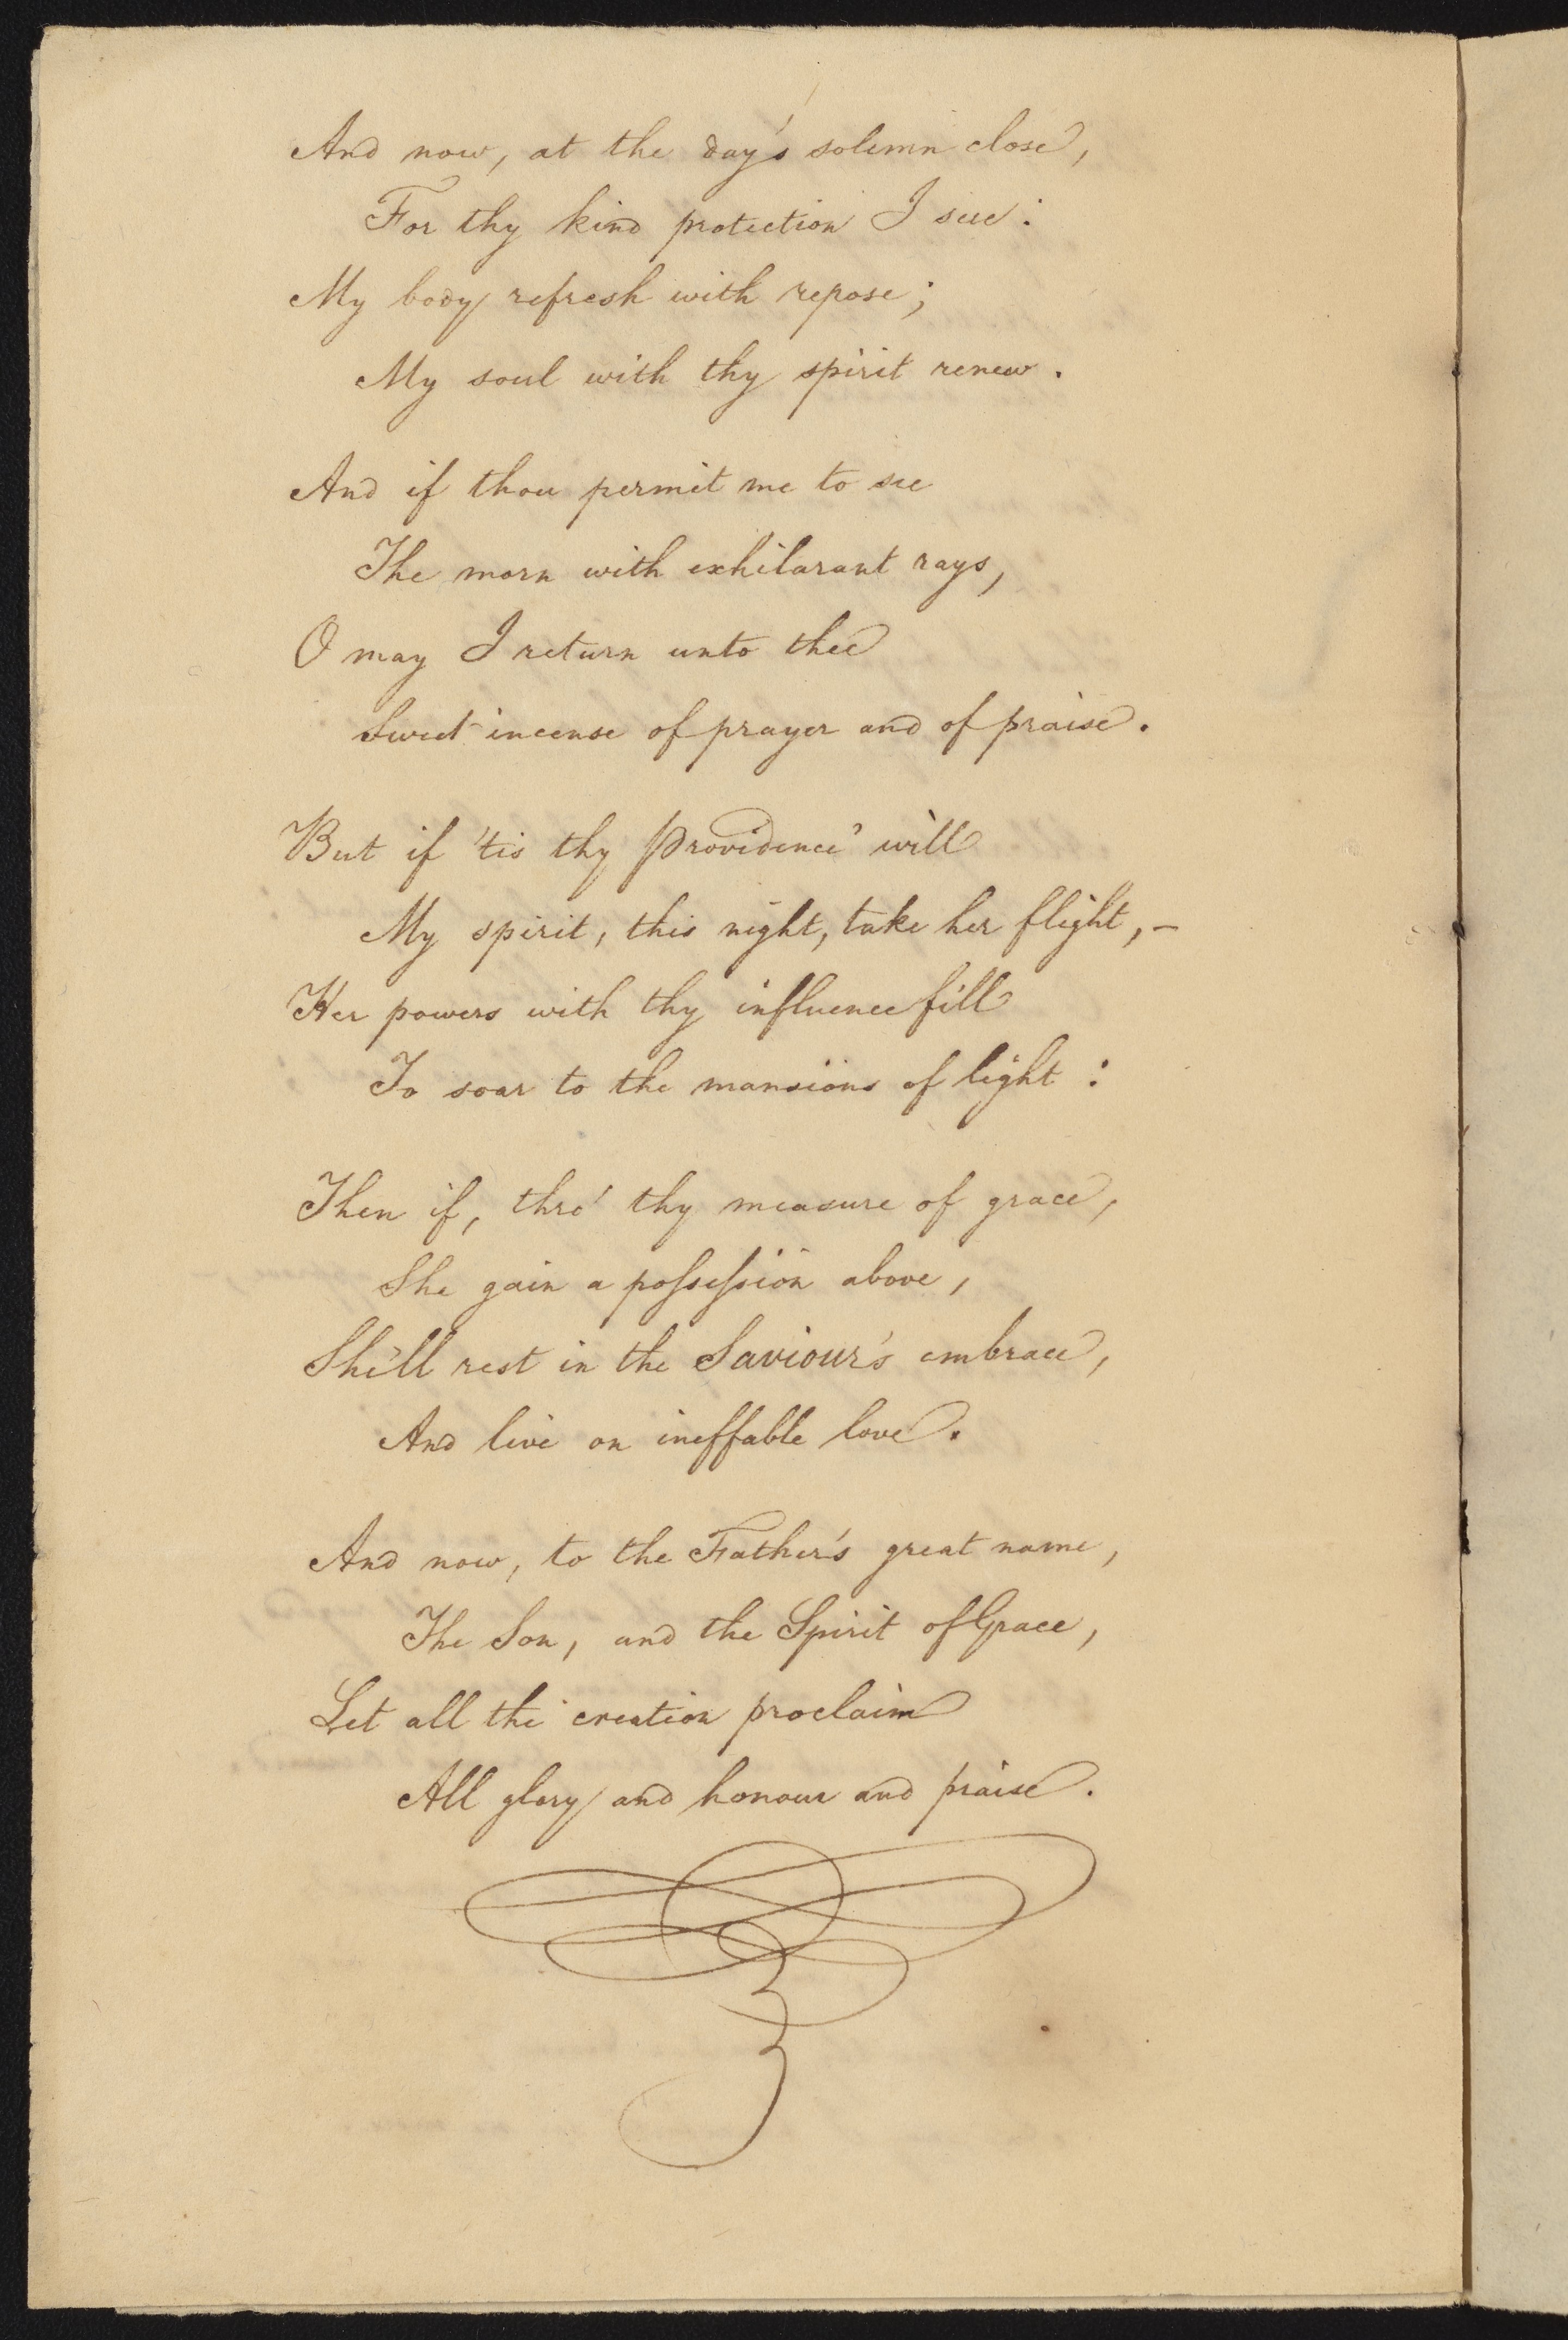 And now, at the day's solemn close,
For thy kind protection I sue:
My body refresh with repose;
My soul with thy spirit renew.
And if thou permit me to see
The morn with exhilarant rays,
O may I return unto thee
Sweet incense of prayer and of praise.
But if 'tis thy Providence' will
My spirit, this night, take her flight, –
Her powers with thy influence fill
To soar to the mansions of light:
Then if, thro' thy measure of grace,
She gain a poſseſsion above,
She'll rest in the Saviour's embrace,
And live on ineffable love.
And now, to the Father's great name,
The Son, and the Spirit of Grace,
Let all the creation proclaim
All glory and honour and praise.